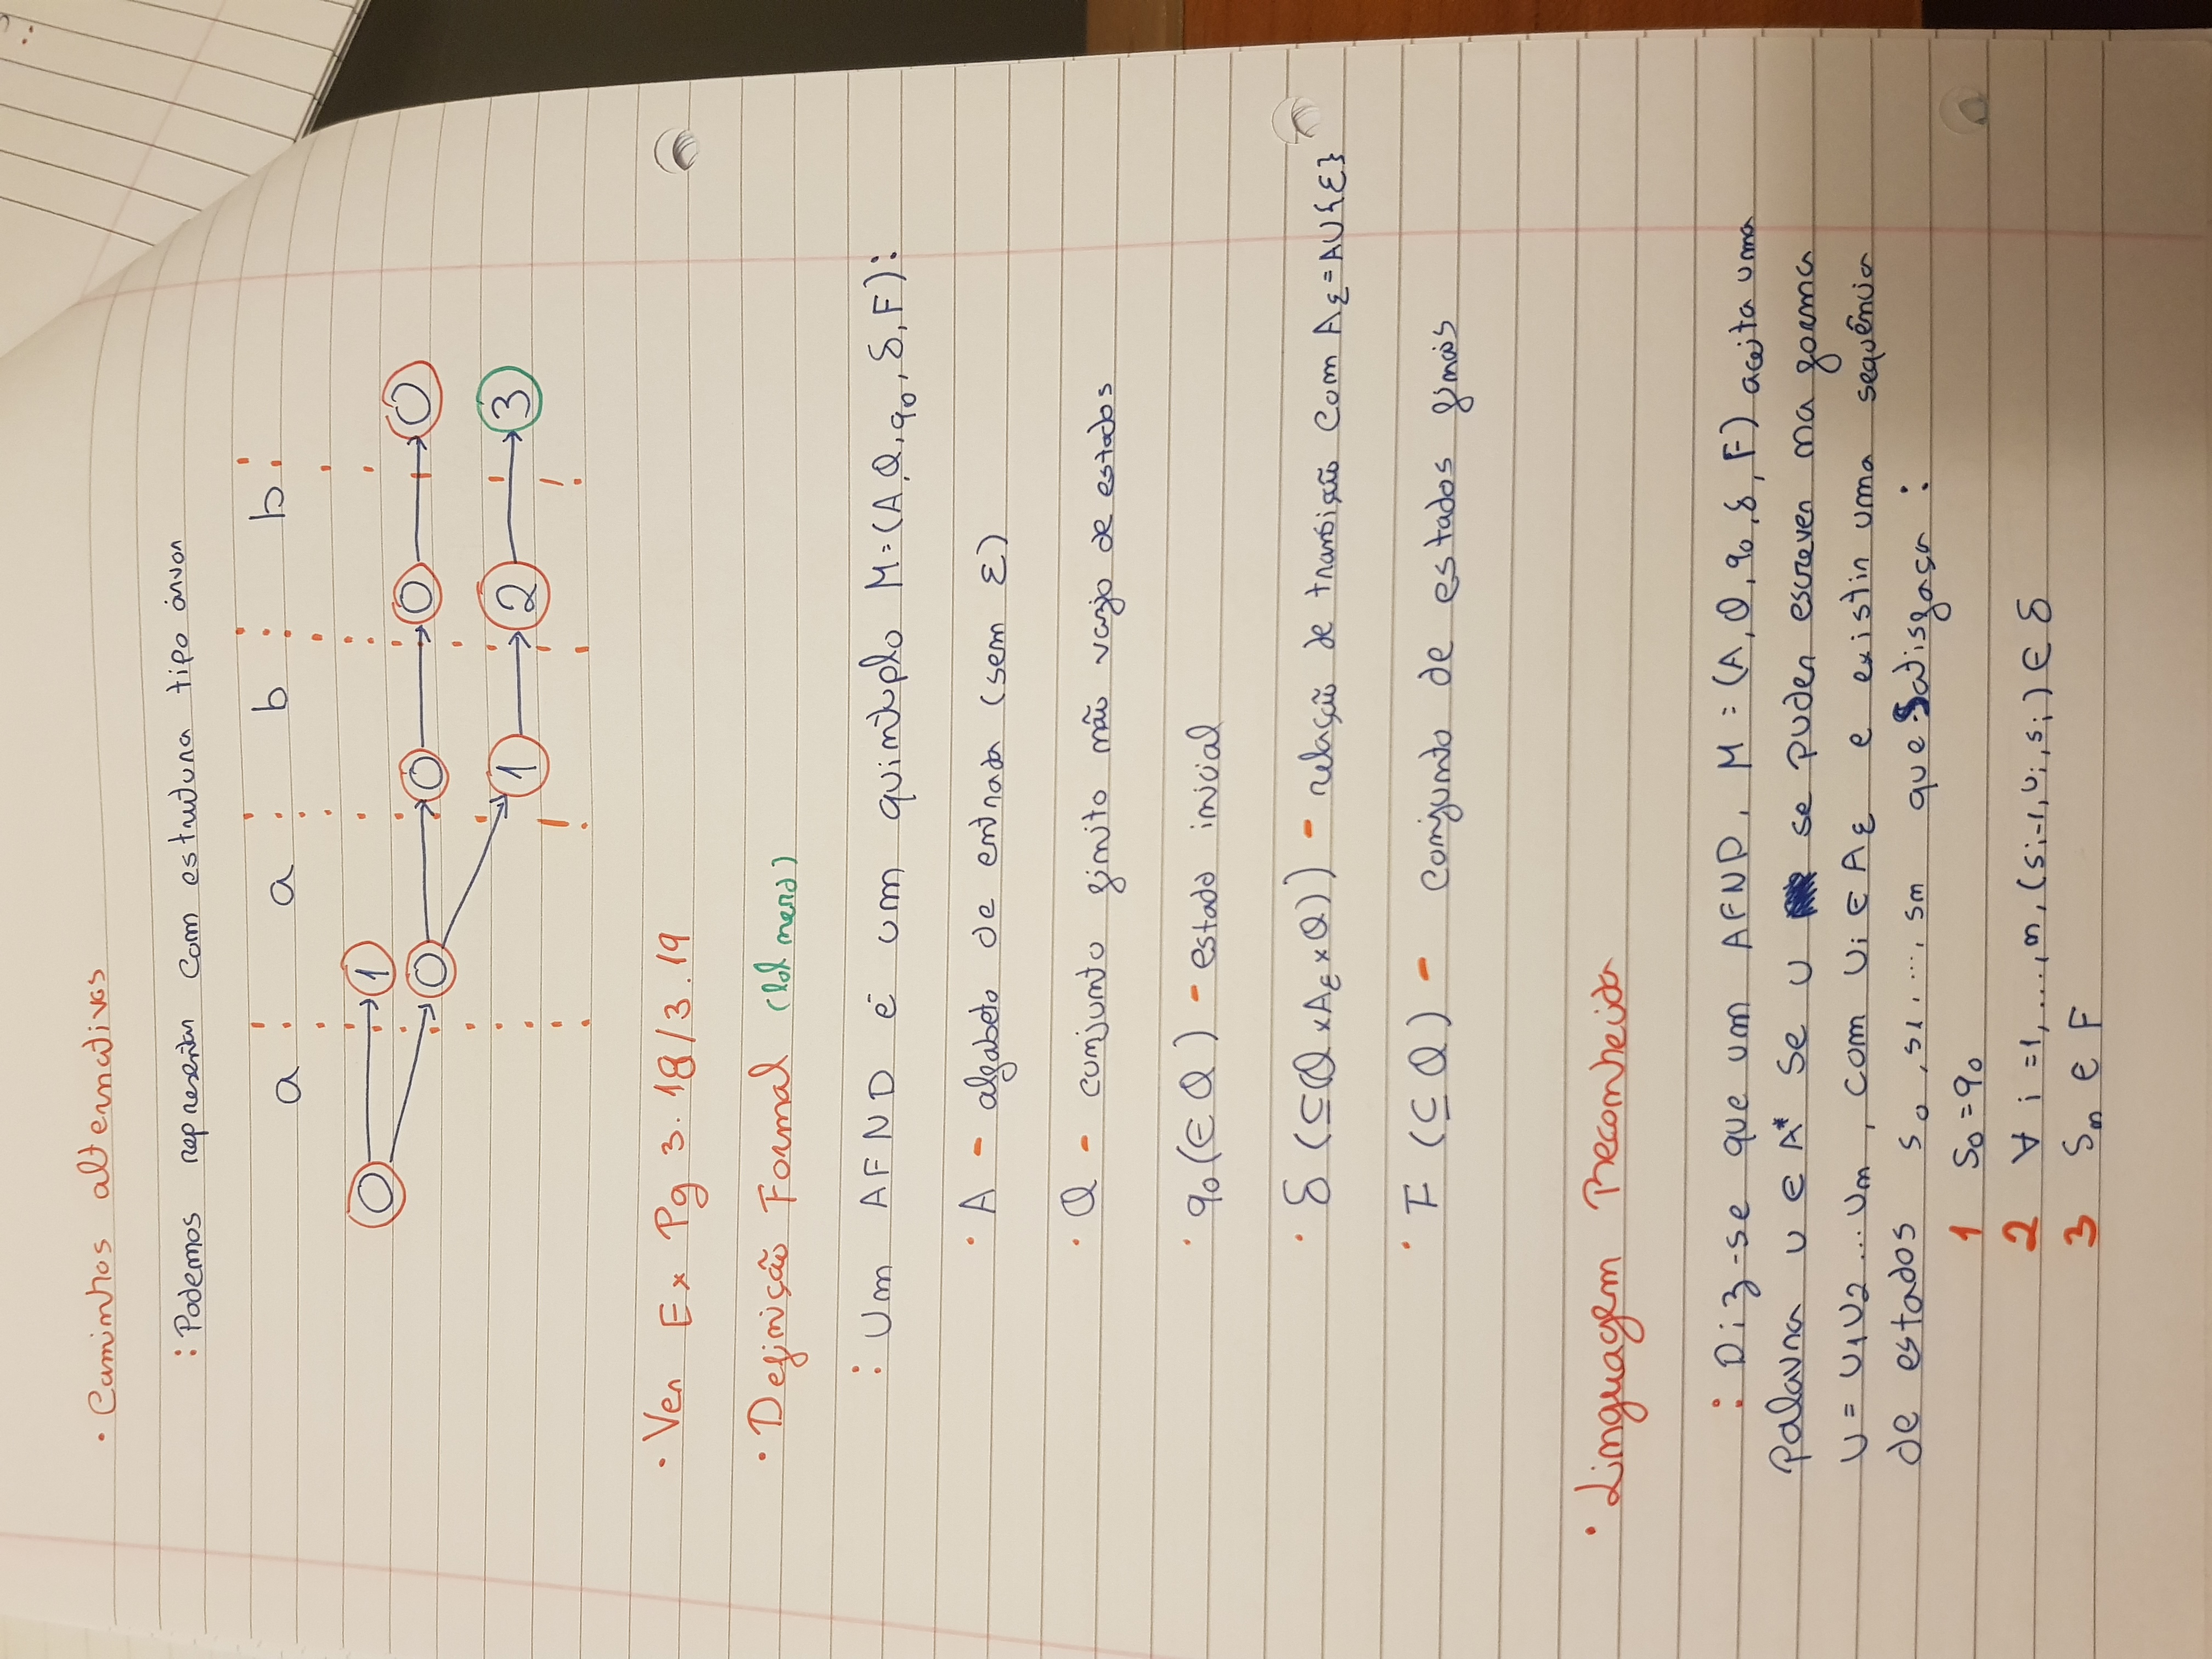 • Caminhos alternativos
: Podemos representar com estrutura tipo árvor
a a b b
0 1
0 0 0 0
1 2 3
• Ver Ex Pg 3.18/3.19
• Definição Formal (lol
: Um AFND é um quíntuplo M=(A,Q,q0,δ,F):
• A - alfabeto de entrada (sem ε)
• Q - conjunto finito não vazio de estados
• q0 (∈ Q) - estado inicial
• δ (⊆(Q×Aε×Q)) - relação de transição com Aε=A∪{ε}
• F (⊆ Q) - conjunto de estados finais
• Linguagem Reconhecida
: Diz-se que um AFND, M = (A,Q,q0,δ,F) aceita uma
palavra u ∈ A* se u se puder escrever na forma
u = u1u2...un, com ui ∈ Aε e existir uma sequência
de estados s0,s1,...,sn que satisfaça :
1 s0=q0
2 ∀ i=1,...,n,(si-1,ui,si) ∈ δ
3 sn ∈ F